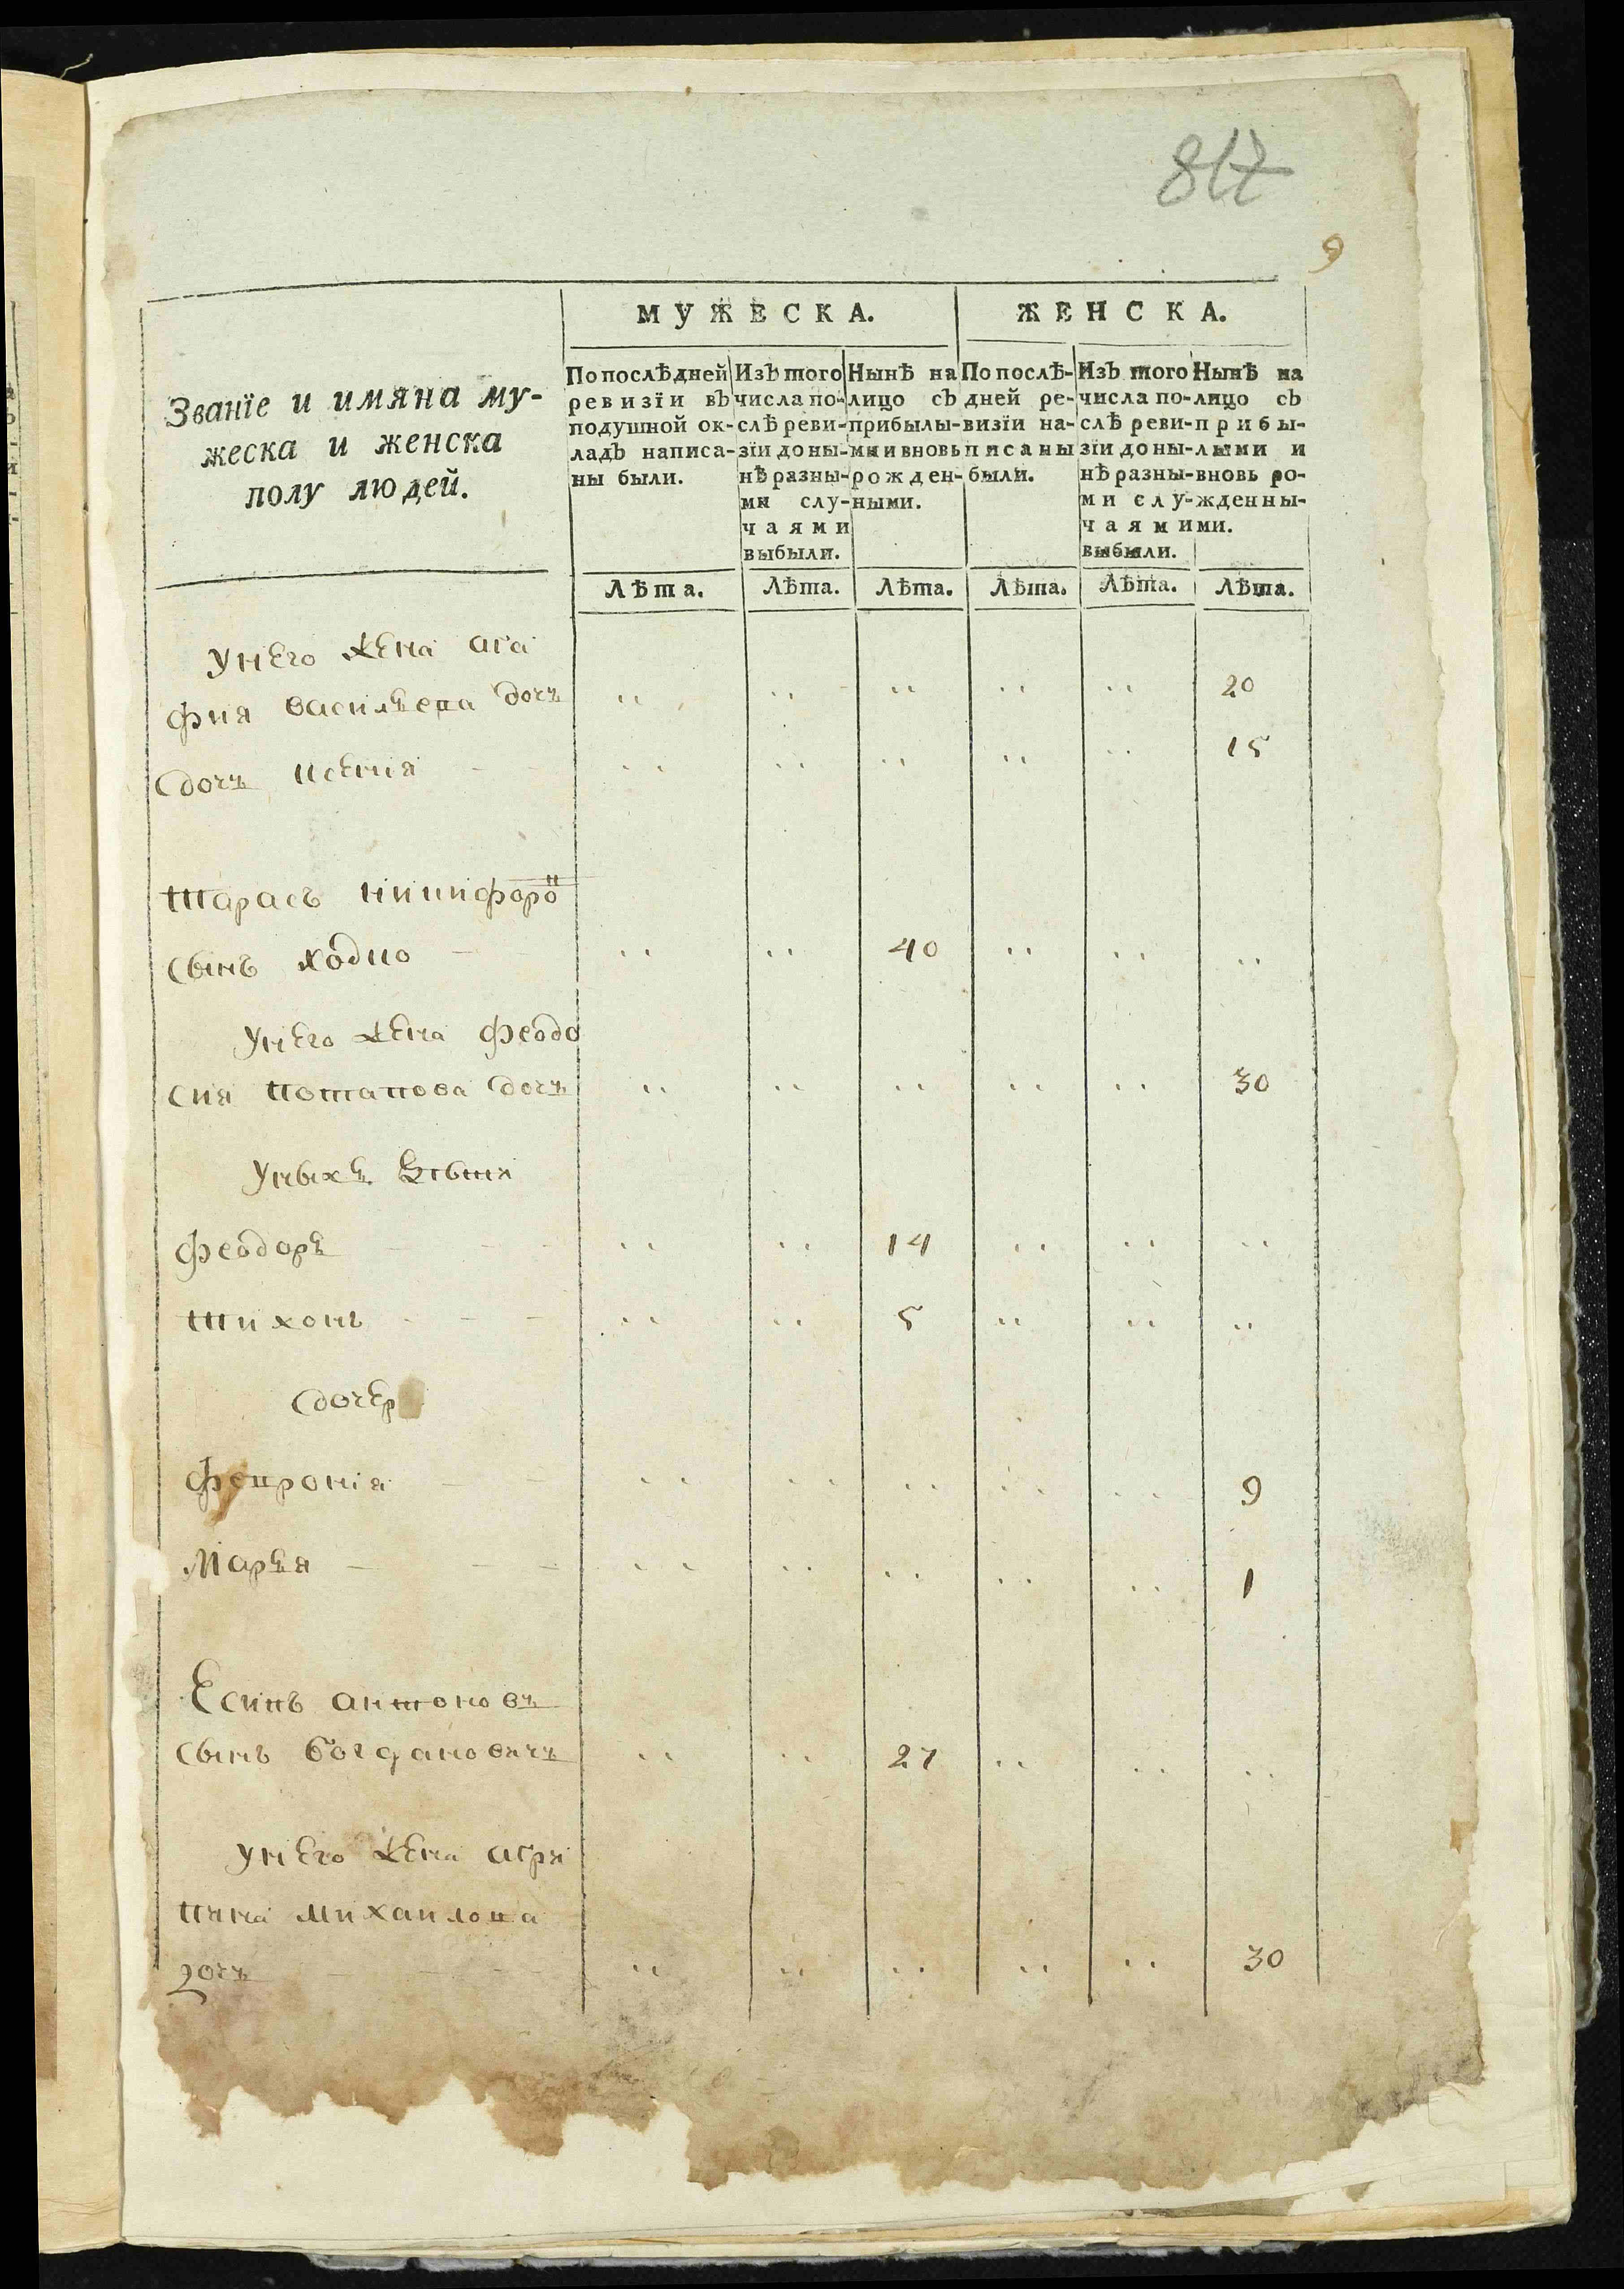 817
9
МУЖЕСКА.
ЖЕНСКА.
Званїе и имяна му-
жеска и женска
полу людей.
По послѣдней
ревизїи въ
подушной ок-
ладъ написа-
ны были.
Изъ того
числа по-
слѣ реви-
зїи до ны-
нѣ разны-
ми слу-
чаями
выбыли.
Нынѣ на
лицо съ
прибылы-
ми и вновь
рожден-
ными.
По послѣ-
дней ре-
визїи на-
писаны
были.
Изъ того
числа по-
слѣ реви-
зїи до ны-
нѣ разны-
ми слу-
чаями
выбыли.
Нынѣ на
лицо съ
прибы-
лыми и
вновь ро-
жденны-
ми.
Лѣта. Лѣта. Лѣта. Лѣта. Лѣта. Лѣта.
у него жена ага
фия василъева дочъ 20
дочъ ксения 15
тарасъ никифоро
сынъ ходко 40
у него жена феодо
сия потапова дочъ 30
у ныхъ
феодоръ 14
тихонъ 5
дочер
февронія 9
Маръя 1
Есипъ антоновъ
сынъ богдановичъ 27
у него жена агри
пина михаилова
дочъ 30